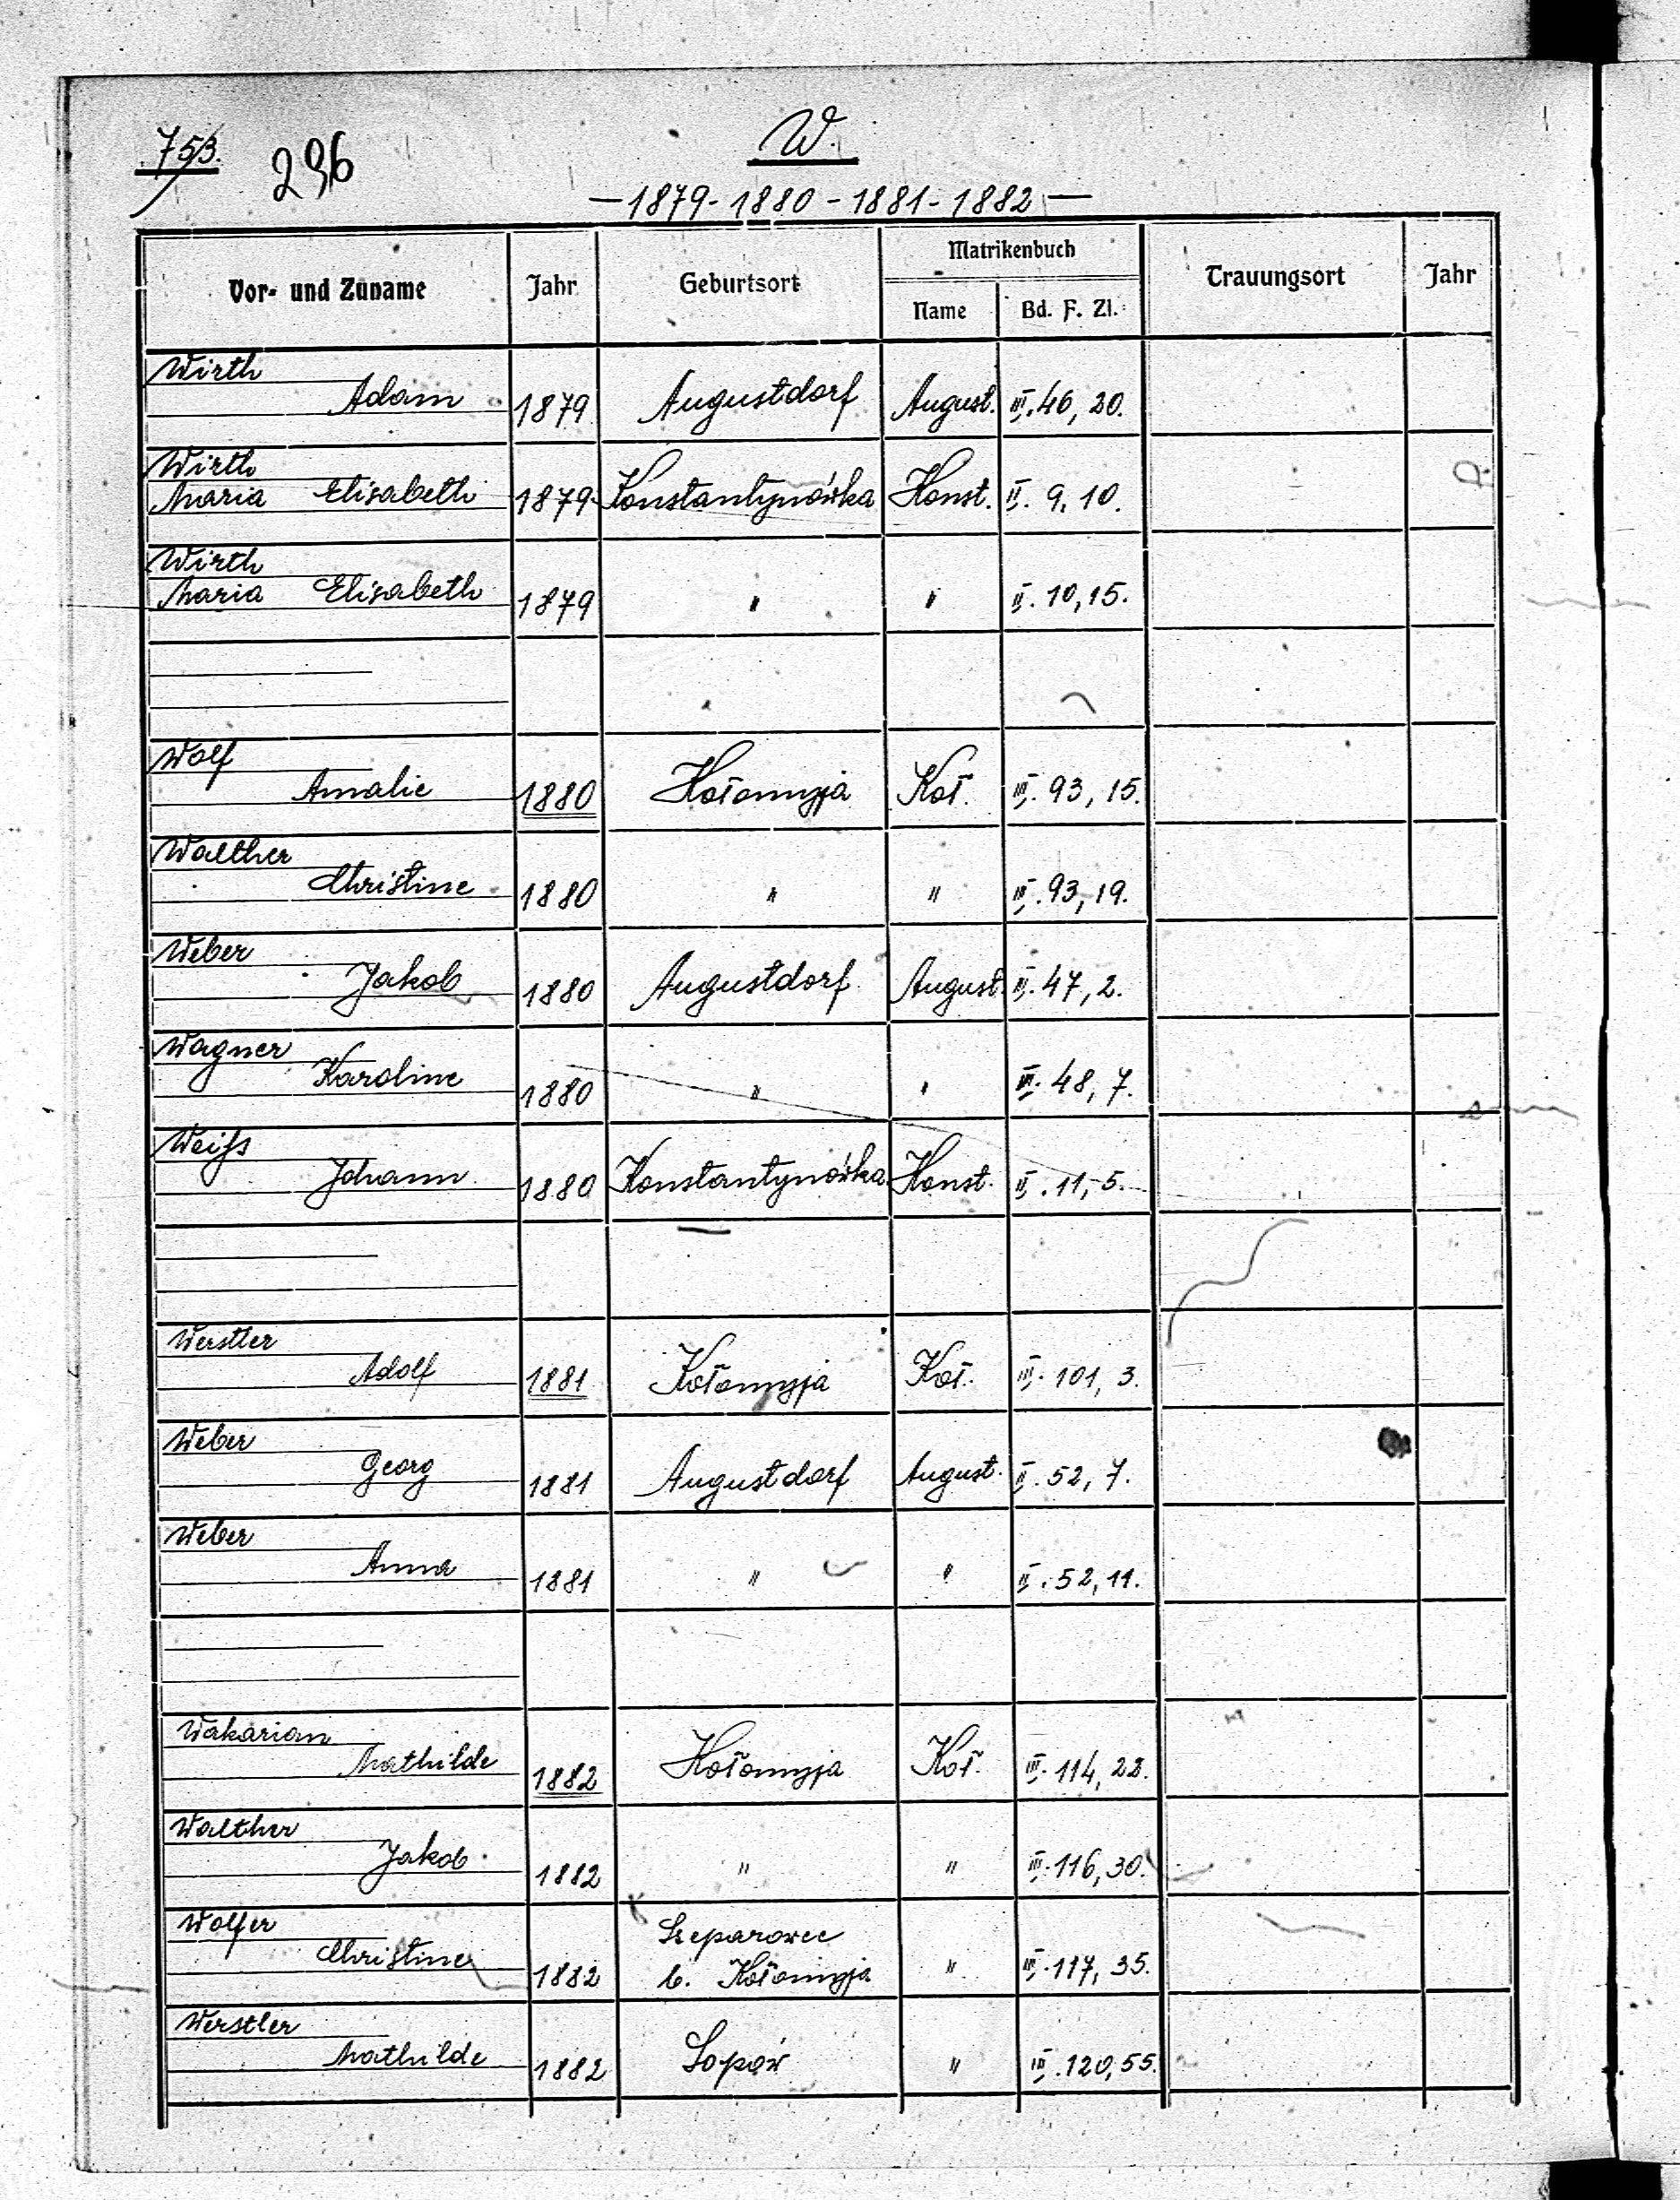 753. 296
W.
— 1879 - 1880 - 1881 - 1882 —
Vor- und Zuname Jahr Geburtsort Matrikenbuch Trauungsort Jahr
Name Bd. F. Zl.
Wirth
Adam 1879 Augustdorf August. III. 46, 20.
Wirth
Maria Elisabeth 1879 Konstantynówka Konst. II. 9, 10.
Wirth
Maria Elisabeth 1879 " " II. 10, 15.
Wolf
Amalie 1880 Kołomyja Koł. III. 93, 15.
Walther
Christine 1880 " " III. 93, 19.
Weber
Jakob 1880 Augustdorf August. III. 47, 2.
Wagner
Karoline 1880 " " III. 48, 7.
Weiß
Johann 1880 Konstantynówka Konst. II. 11, 5.
Werstler
Adolf 1881 Kołomyja Koł. III. 101, 3.
Weber
Georg 1881 Augustdorf August. II. 52, 7.
Weber
Anna 1881 " " II. 52, 11.
Wakarian
Mathilde 1882 Kołomyja Koł. III. 114, 22.
Walther
Jakob 1882 " " III. 116, 30.
Wolfer Szeparowce
Christine 1882 b. Kołomyja " III. 117, 35.
Werstler
Mathilde 1882 Sopów " III. 120, 55.